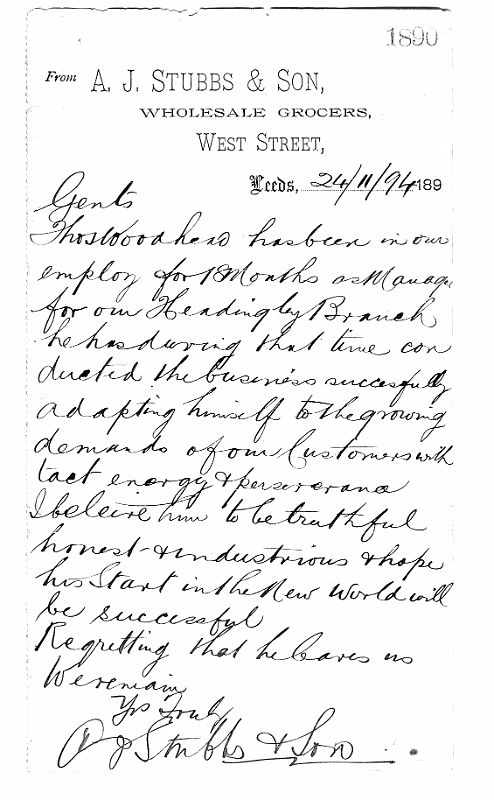 1890
From A. J. STUBBS & SON,
WHOLESALE GROCERS,
WEST STREET,
Leeds, 24/11/94 189
Gents
Thos Woodhead has been in our
employ for 18 Months as Manager
for our Headingley Branch
he has during that time con
ducted the business succesfully
adapting himself to the growing
demands of our Customers with
tact energy & perserverance
I beleive him to be truthful
honest & industrious & hope
his Start in the New World will
be successful
Regretting that he leaves us
We remain
Yrs Truly
A J Stubbs & Son